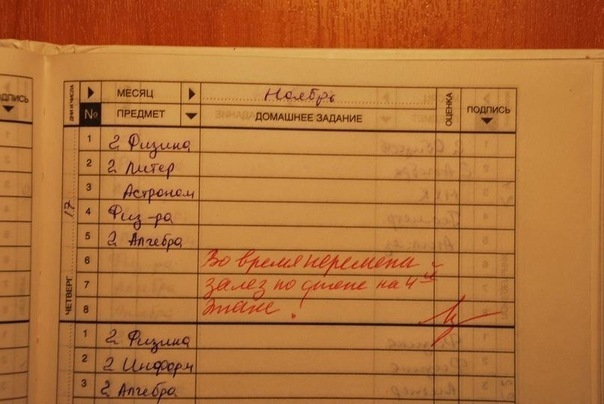 ДНИ И ЧИСЛА МЕСЯЦ Ноябрь ОЦЕНКА ПОДПИСЬ
№ ПРЕДМЕТ ДОМАШНЕЕ ЗАДАНИЕ
ЧЕТВЕРГ 17
1 2 Физика
2 2 Литер
3 Астроном
4 Физ-ра
5 2 Алгебра
6 Во время перемены
7 залез по стене на 4ый
8 этаж.
1 2 Физика
2 2 Информ
3 2 Алгебра
ДПИСЬ